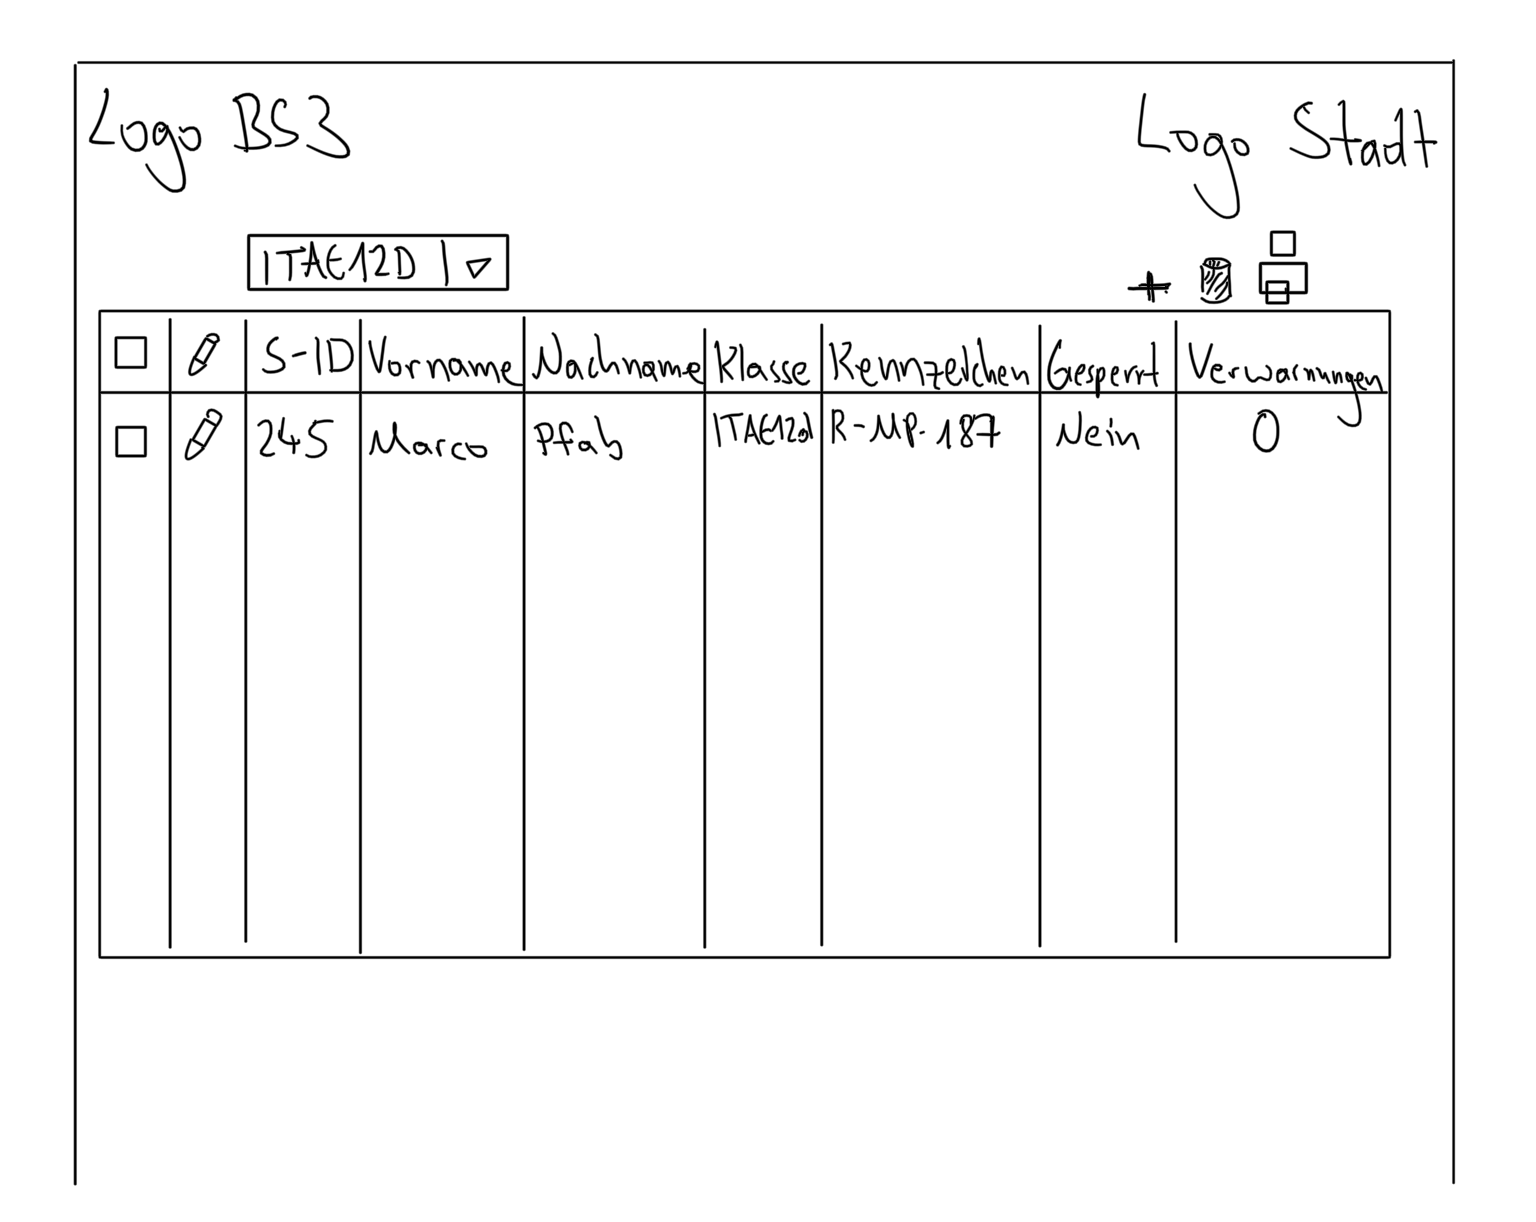 Logo BS3 Logo Stadt
ITAE12D
S-ID Vorname Nachname Klasse Kennzeichen Gesperrt Verwarnungen
245 Marco Pfab ITAE12d R-MP-187 Nein 0